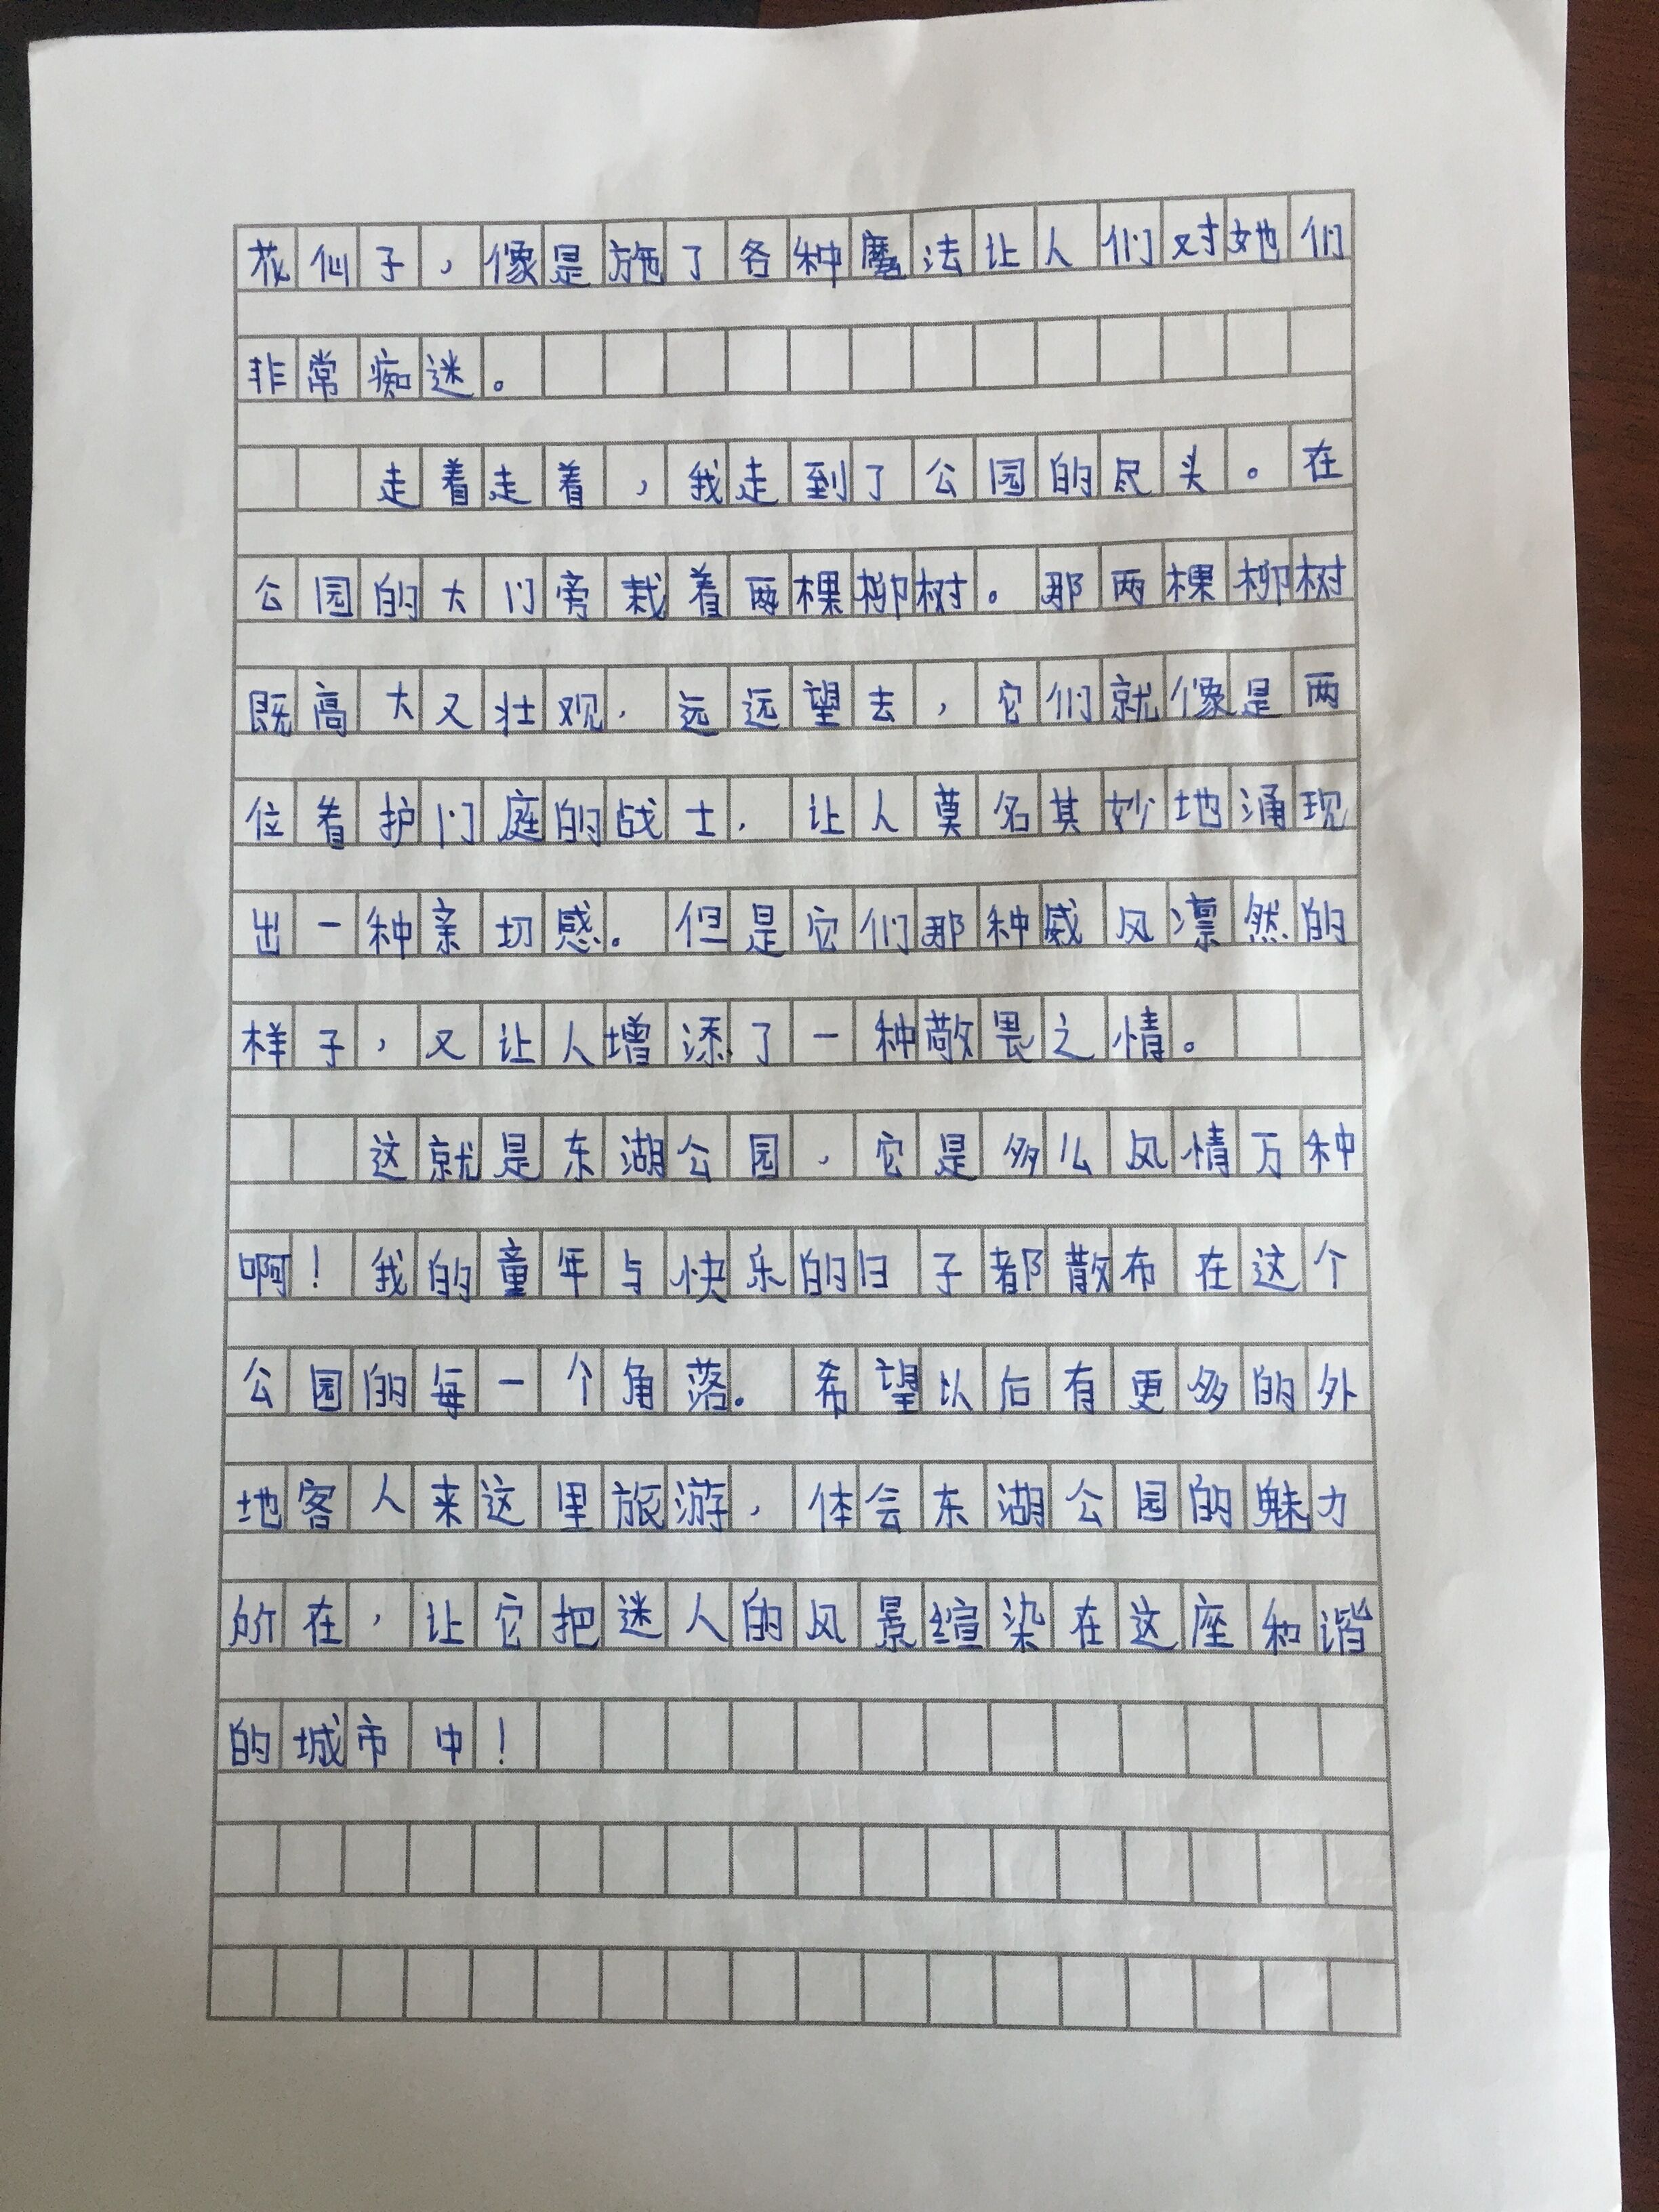 花仙子，像是施了各种魔法让人们对她们
非常痴迷。
走着走着，我走到了公园的尽头。在
公园的大门旁栽着两棵柳树。那两棵柳树
既高大又壮观，远远望去，它们就像是两
位看护门庭的战士，让人莫名其妙地涌现
出一种亲切感。但是它们那种威风凛然的
样子，又让人增添了一种敬畏之情。
这就是东湖公园，它是多么风情万种
啊！我的童年与快乐的日子都散布在这个
公园的每一个角落。希望以后有更多的外
地客人来这里旅游，体会东湖公园的魅力
所在，让它把迷人的风景渲染在这座和谐
的城市中！